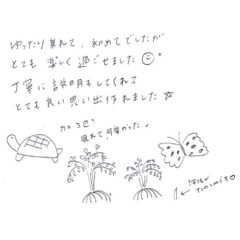 ゆったり見れて、初めてでしたが
とても楽しく過ごせました
丁寧に説明もしてくれて
とても良い思い出作れました
カメ3匹?
見れて可愛かった